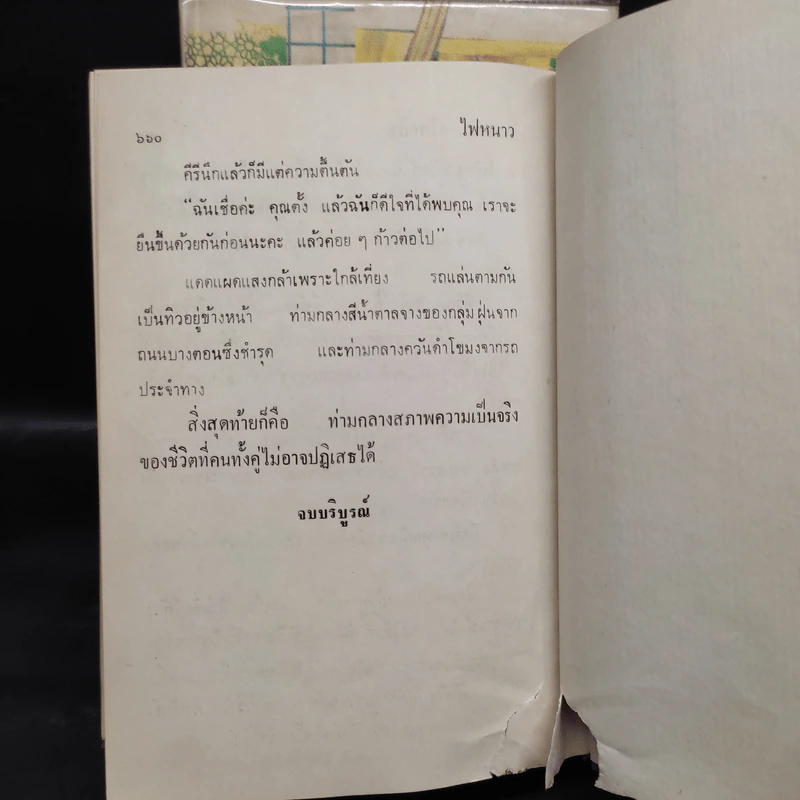 ๖๖๐ ไฟหนาว
คีรีนึกแล้วก็มีแต่ความตื้นตัน
“ฉันเชื่อค่ะ คุณตั้ง แล้วฉันก็ดีใจที่ได้พบคุณ เราจะ
ยืนขึ้นด้วยกันก่อนนะคะ แล้วค่อย ๆ ก้าวต่อไป”
แดดแผดแสงกล้าเพราะใกล้เที่ยง รถแล่นตามกัน
เป็นทิวอยู่ข้างหน้า ท่ามกลางสีน้ำตาลจางของกลุ่มฝุ่นจาก
ถนนบางตอนซึ่งชำรุด และท่ามกลางควันดำโขมงจากรถ
ประจำทาง
สิ่งสุดท้ายก็คือ ท่ามกลางสภาพความเป็นจริง
ของชีวิตที่คนทั้งคู่ไม่อาจปฏิเสธได้
จบบริบูรณ์